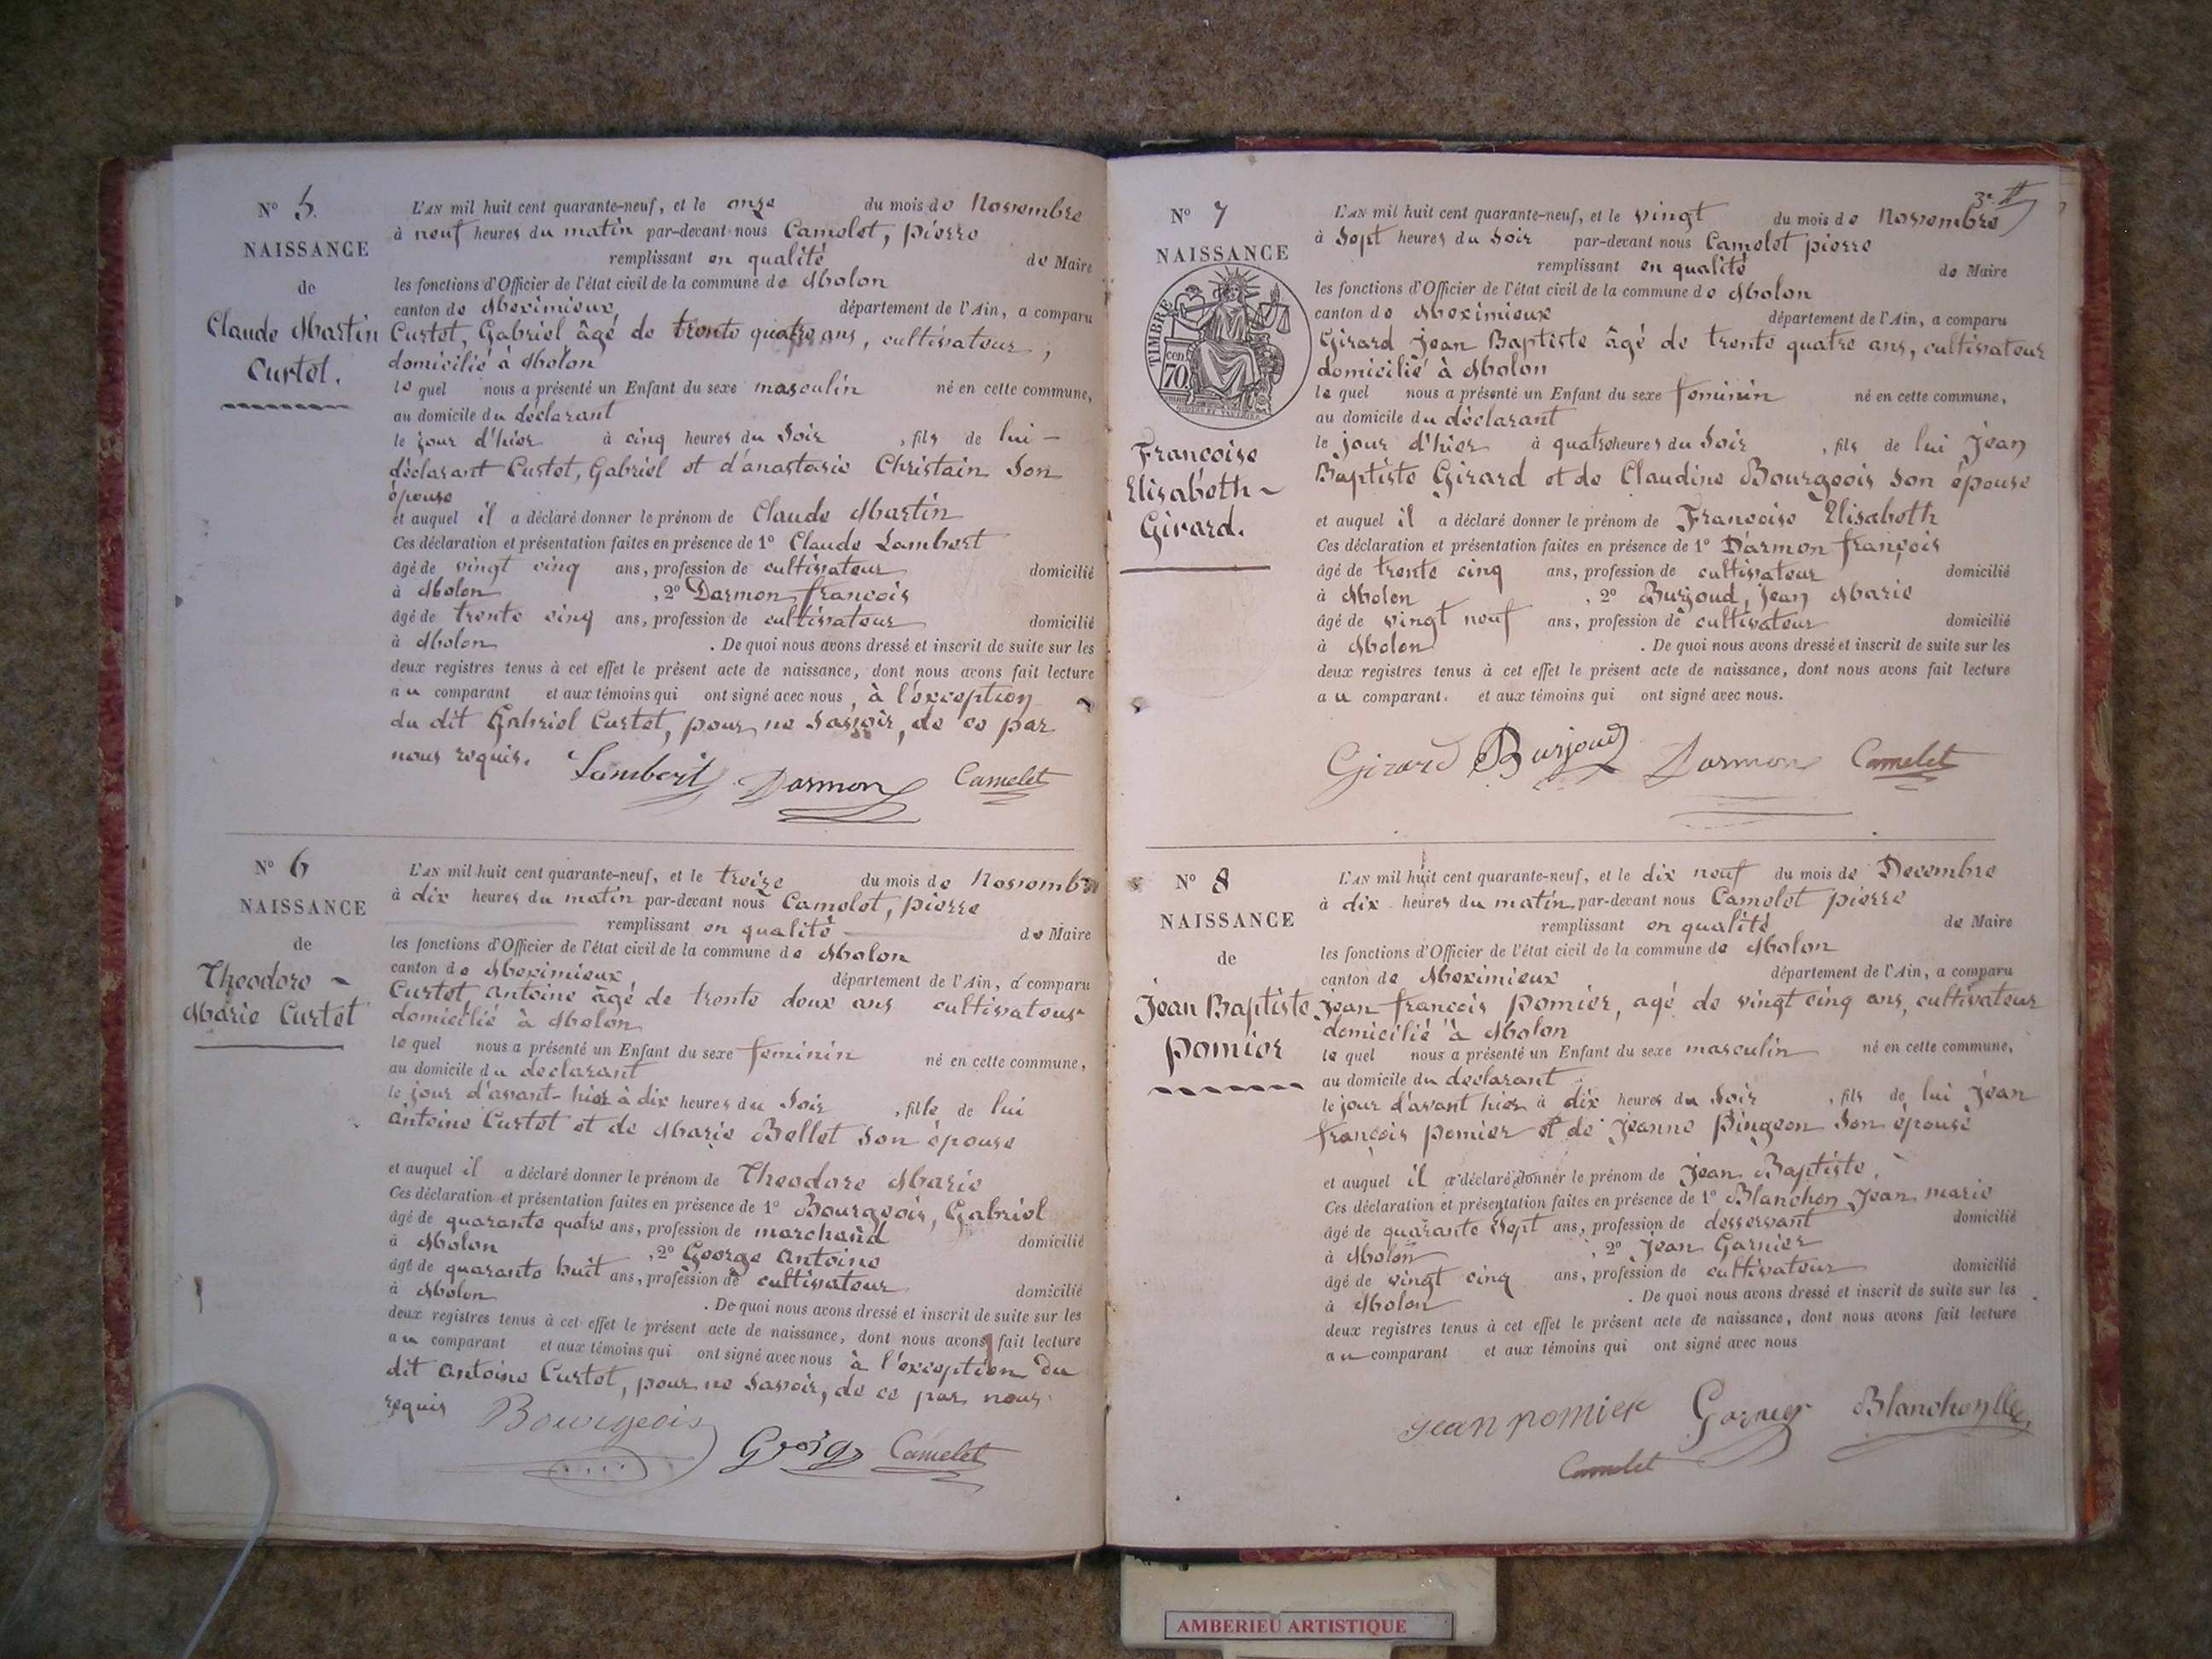 N° 5.
NAISSANCE
de
Claude Martin
Curtet.
L'AN mil huit cent quarante-neuf, et le onze du mois de Novembre
à neuf heures du matin par-devant nous Camelet, pierre
remplissant en qualité de Maire
les fonctions d'Officier de l'état civil de la commune de Molon
canton de Meximieux département de l'Ain, a comparu
Curtet, Gabriel âgé de trente quatre ans, cultivateur,
domicilié à Molon
le quel nous a présenté un Enfant du sexe masculin né en cette commune,
au domicile du déclarant
le jour d'hier à cinq heures du Soir , fils de lui —
déclarant Curtet, Gabriel et d'anastasie Christain Son
épouse
et auquel il a déclaré donner le prénom de Claude Martin
Ces déclaration et présentation faites en présence de 1° Claude Lambert
âgé de vingt cinq ans, profession de cultivateur domicilié
à Molon , 2° Darmon, françois
âgé de trente cinq ans, profession de cultivateur domicilié
à Molon . De quoi nous avons dressé et inscrit de suite sur les
deux registres tenus à cet effet le présent acte de naissance, dont nous avons fait lecture
au comparant et aux témoins qui ont signé avec nous, à l'exception
du dit Gabriel Curtet, pour ne Savoir, de ce par
nous requis. Lambert Darmon Camelet
N° 6
NAISSANCE
de
Theodore -
Marie Curtet
L'AN mil huit cent quarante-neuf, et le treize du mois de Novembre
à dix heures du matin par-devant nous Camelet, pierre
remplissant en qualité de Maire
les fonctions d'Officier de l'état civil de la commune de Molon
canton de Meximieux département de l'Ain, a comparu
Curtet, antoine âgé de trente deux ans cultivateur
domicilié à Molon
le quel nous a présenté un Enfant du sexe feminin né en cette commune,
au domicile du declarant
le jour d'avant-hier à dix heures du Soir , fille de lui
antoine Curtet et de Marie Bellet Son épouse
et auquel il a déclaré donner le prénom de Theodore Marie
Ces déclaration et présentation faites en présence de 1° Bourgeois, Gabriel
âgé de quarante quatre ans, profession de marchand domicilié
à Molon , 2° George antoine
âgé de quarante huit ans, profession de cultivateur domicilié
à Molon . De quoi nous avons dressé et inscrit de suite sur les
deux registres tenus à cet effet le présent acte de naissance, dont nous avons fait lecture
au comparant et aux témoins qui ont signé avec nous à l'exception du
dit antoine Curtet, pour ne Savoir, de ce par nous
requis Bourgeois George Camelet
3e
N° 7
NAISSANCE
TIMBRE
cent
70
Francoise
Elisabeth -
Girard.
L'AN mil huit cent quarante-neuf, et le vingt du mois de Novembre
à Sept heures du Soir par-devant nous Camelet pierre
remplissant en qualité de Maire
les fonctions d'Officier de l'état civil de la commune de Molon
canton de Meximieux département de l'Ain, a comparu
Girard jean Baptiste âgé de trente quatre ans, cultivateur
domicilié à Molon
le quel nous a présenté un Enfant du sexe feminin né en cette commune,
au domicile du déclarant
le jour d'hier à quatre heures du Soir , fils de lui jean
Baptiste Girard et de Claudine Bourgeois Son épouse
et auquel il a déclaré donner le prénom de Francoise Elisabeth
Ces déclaration et présentation faites en présence de 1° Darmon françois
âgé de trente cinq ans, profession de cultivateur domicilié
à Molon , 2° Burjoud, jean Marie
âgé de vingt neuf ans, profession de cultivateur domicilié
à Molon . De quoi nous avons dressé et inscrit de suite sur les
deux registres tenus à cet effet le présent acte de naissance, dont nous avons fait lecture
au comparant. et aux témoins qui ont signé avec nous.
Girard Burjoud Darmon Camelet
N° 8
NAISSANCE
de
Jean Baptiste
pomier
L'AN mil huit cent quarante-neuf, et le dix neuf du mois de Decembre
à dix heures du matin par-devant nous Camelet pierre
remplissant en qualité de Maire
les fonctions d'Officier de l'état civil de la commune de Molon
canton de Meximieux département de l'Ain, a comparu
jean françois pomier, agé de vingt cinq ans, cultivateur
domicilié à Molon
le quel nous a présenté un Enfant du sexe masculin né en cette commune,
au domicile du declarant
le jour d'avant hier à dix heures du Soir , fils de lui jean
françois pomier et de jeanne pingeon Son épouse
et auquel il a déclaré donner le prénom de jean Baptiste,
Ces déclaration et présentation faites en présence de 1° Blanchon Jean marie
âgé de quarante Sept ans, profession de desservant domicilié
à Molon , 2° jean Garnier
âgé de vingt cinq ans, profession de cultivateur domicilié
à Molon . De quoi nous avons dressé et inscrit de suite sur les
deux registres tenus à cet effet le présent acte de naissance, dont nous avons fait lecture
au comparant et aux témoins qui ont signé avec nous
jean pomier Garnier
Camelet
AMBERIEU ARTISTIQUE